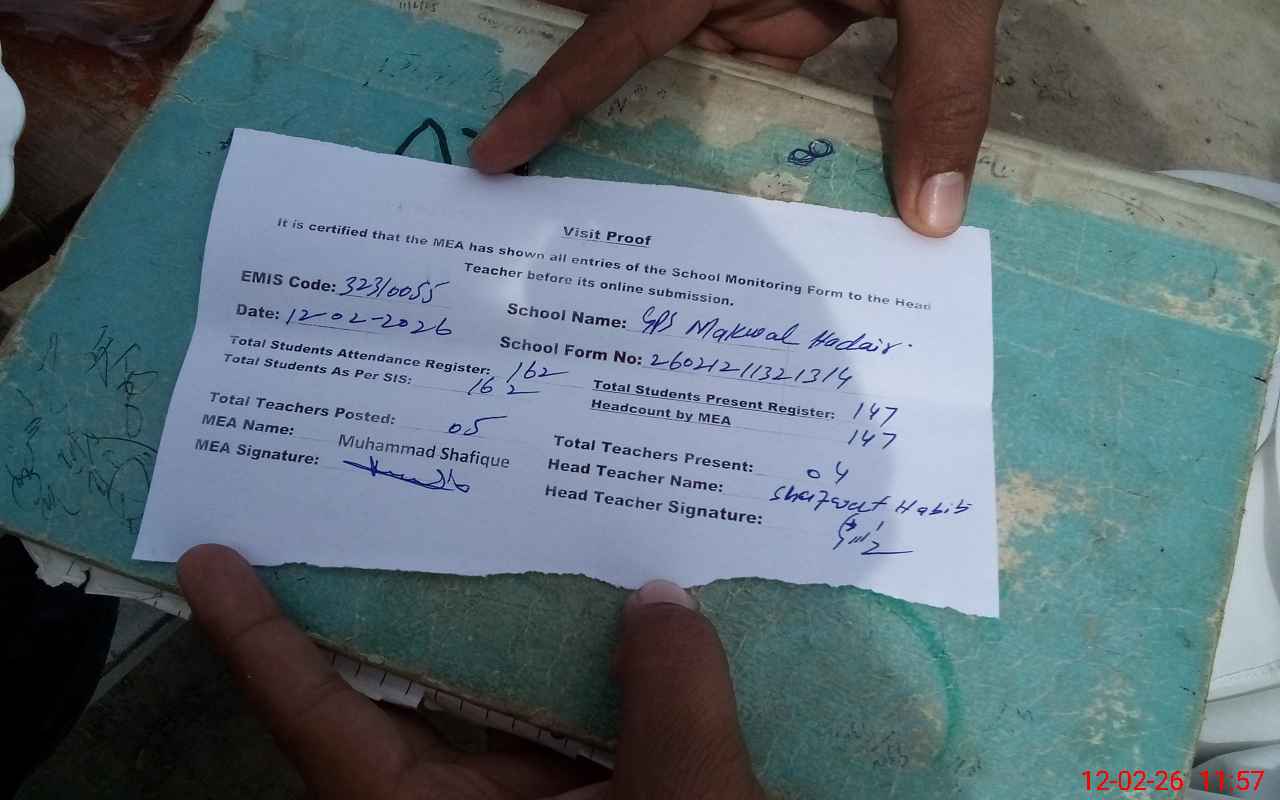 Visit Proof
It is certified that the MEA has shown all entries of the School Monitoring Form to the Head
Teacher before its online submission.
EMIS Code: 32310055
School Name: GPS Makwal Hadair.
Date: 12-02-2026
School Form No: 26021211321314
Total Students Attendance Register: 162
Total Students Present Register: 147
Total Students As Per SIS: 162
Headcount by MEA 147
Total Teachers Posted: 05
Total Teachers Present: 04
MEA Name: Muhammad Shafique
Head Teacher Name: Habib
MEA Signature:
Head Teacher Signature:
12-02-26 11:57